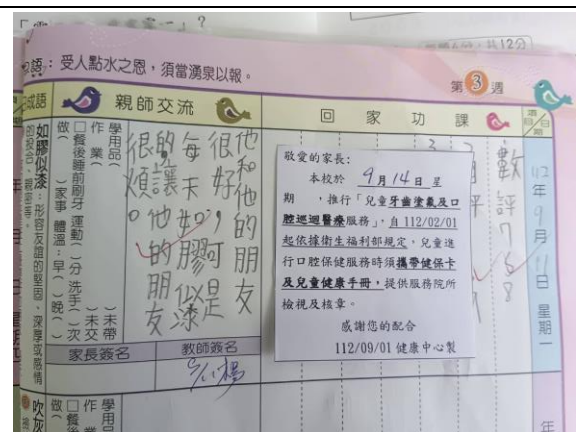 語：受人點水之恩，須當湧泉以報。
第3週
成語
親師交流
回家功課
項目/日期
如膠似漆：形容友誼的堅固、深厚或感情的投合、親密等。
學用品（ ）未帶
作業（ ）未交
□餐後睡前刷牙 運動（ ）分 洗手（ ）次
做（ ）家事 體溫：早（ ）晚（ ）
他和他的朋友
很好，可是
每天如膠似漆
的，讓他的朋友
很煩。
家長簽名
教師簽名
9/11楊
敬愛的家長：
本校於 9月14日 星
期 ，推行「兒童牙齒塗氟及口
腔巡迴醫療服務」，自 112/02/01
起依據衛生福利部規定，兒童進
行口腔保健服務時須攜帶健保卡
及兒童健康手冊，提供服務院所
檢視及核章。
感謝您的配合
112/09/01 健康中心製
數評7、8
112年9月11日 星期一
吹灰
學用品
作業
□餐後
做（
年